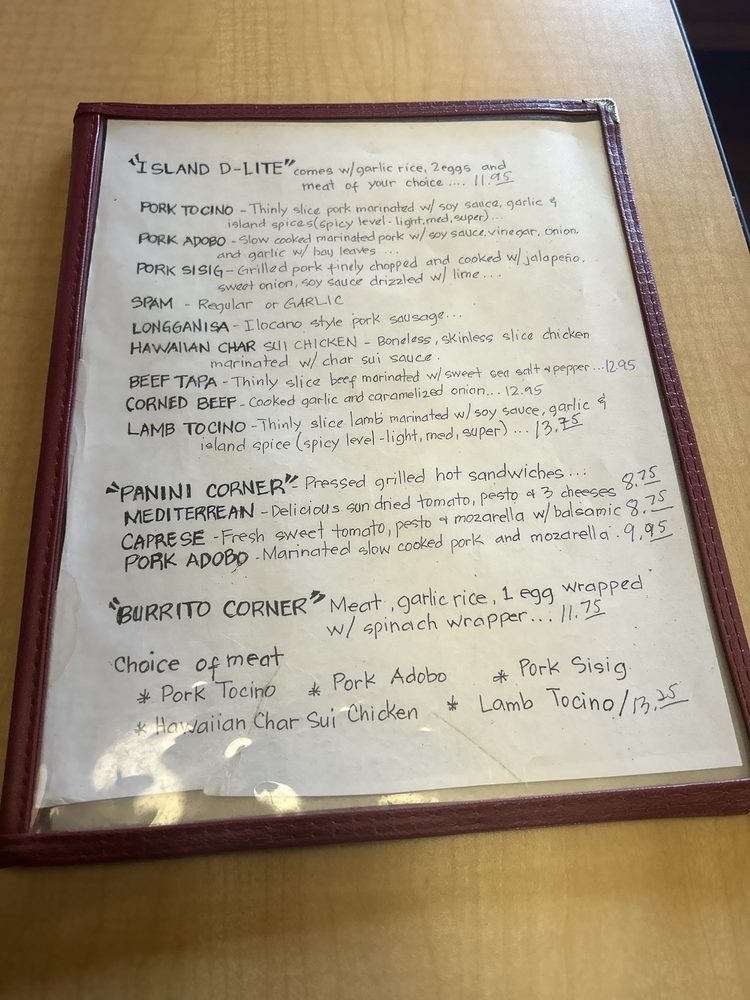 "ISLAND D-LITE" comes w/garlic rice, 2eggs and
meat of your choice .... 11.95
PORK TOCINO - Thinly slice pork marinated w/ soy sauce, garlic &
island spices (spicy level - light, med, super)...
PORK ADOBO - Slow cooked marinated pork w/ soy sauce, vinegar, onion,
and garlic w/ bay leaves ...
PORK SISIG - Grilled pork finely chopped and cooked w/ jalapeño,
sweet onion, soy sauce drizzled w/ lime ...
SPAM - Regular or GARLIC
LONGGANISA - Ilocano style pork sausage...
HAWAIIAN CHAR SUI CHICKEN - Boneless, skinless slice chicken
marinated w/ char sui sauce.
BEEF TAPA - Thinly slice beef marinated w/ sweet sea salt & pepper ... 12.95
CORNED BEEF - Cooked garlic and caramelized onion... 12.95
LAMB TOCINO - Thinly slice lamb marinated w/ soy sauce, garlic &
island spice (spicy level - light, med, super) ... 13.75
"PANINI CORNER" - Pressed grilled hot sandwiches ...
MEDITERREAN - Delicious sun dried tomato, pesto & 3 cheeses 8.75
CAPRESE - Fresh sweet tomato, pesto & mozarella w/ balsamic 8.75
PORK ADOBO - Marinated slow cooked pork and mozarella . 9.95
"BURRITO CORNER" Meat, garlic rice, 1 egg wrapped
w/ spinach wrapper... 11.75
Choice of meat
* Pork Tocino * Pork Adobo * Pork Sisig
* Hawaiian Char Sui Chicken * Lamb Tocino / 13.25